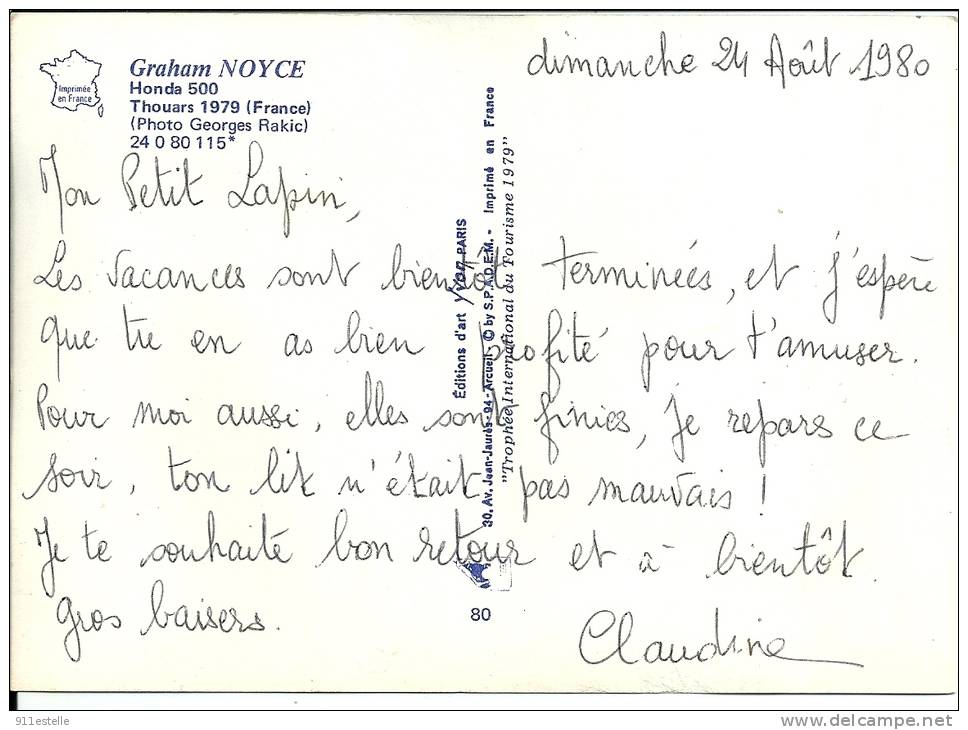 dimanche 24 Août 1980
Imprimée
en France
Graham NOYCE
Honda 500
Thouars 1979 (France)
(Photo Georges Rakic)
24 0 80 115*
Mon Petit Lapin,
Les vacances sont bientôt terminées, et j'espère
que tu en as bien profité pour t'amuser.
Pour moi aussi, elles sont finies, je repars ce
soir, ton lit n'était pas mauvais !
Je te souhaite bon retour et à bientôt.
Gros baisers.
Claudine
Éditions d'art Yvon PARIS
30, Av. Jean-Jaurès-94-Arcueil - © by S.P.A.D.E.M. - Imprimé en France
"Trophée International du Tourisme 1979"
80
911estelle
www.delcampe.net